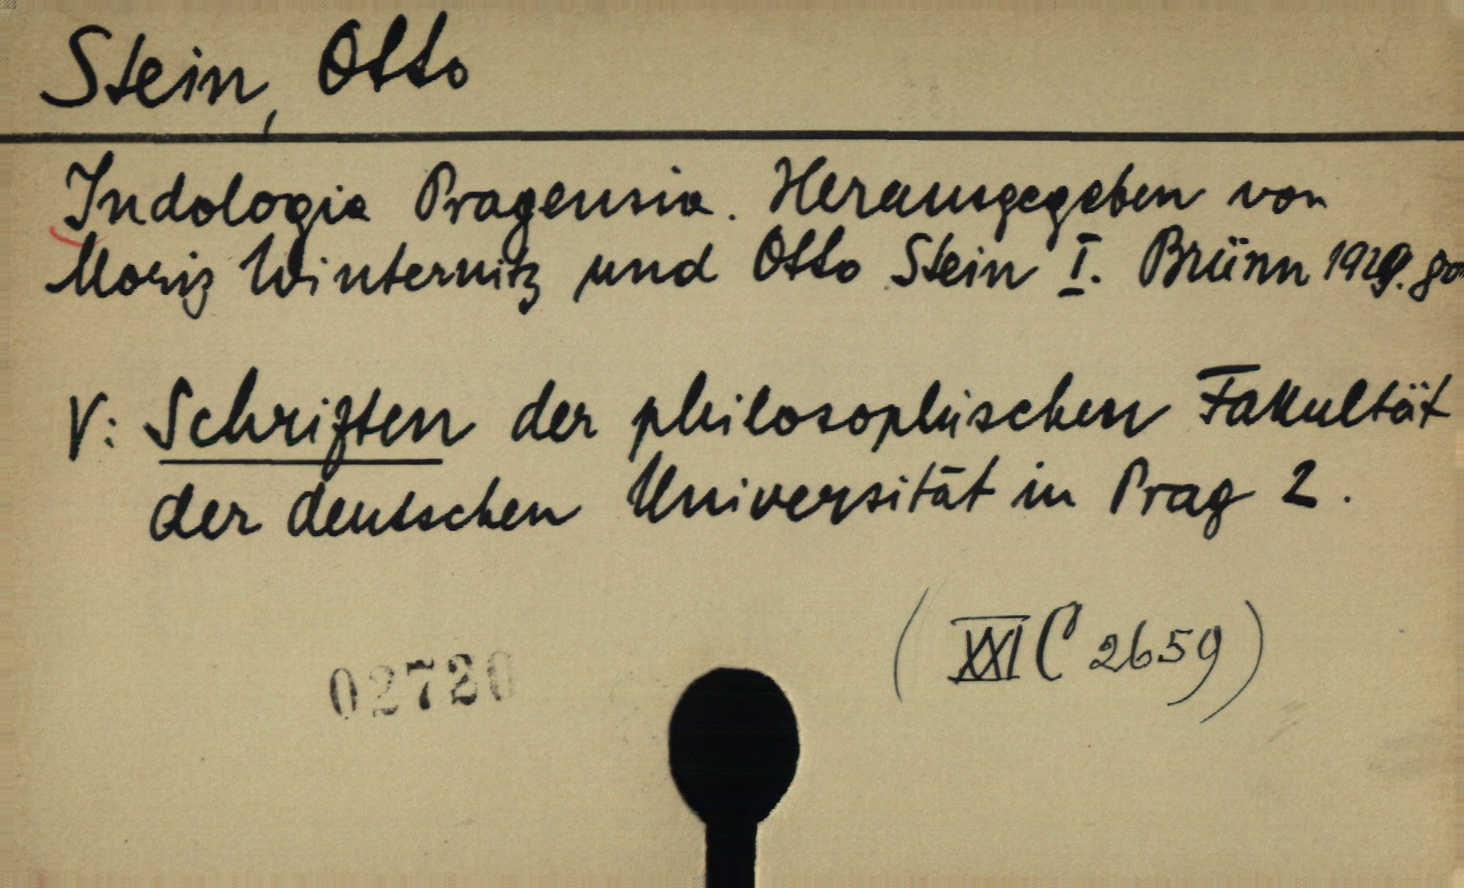 Stein, Otto
Indologia Pragensia. Herausgegeben von
Moriz Winternitz und Otto Stein I. Brünn 1929. 8o
V: Schriften der philosophischen Fakultät
der deutschen Universität in Prag 2.
(XXI C 2659)
02720